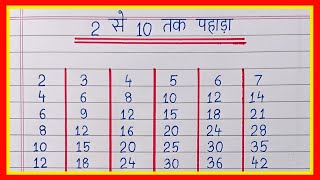 2 से 10 तक पहाड़ा
2 3 4 5 6 7
4 6 8 10 12 14
6 9 12 15 18 21
8 12 16 20 24 28
10 15 20 25 30 35
12 18 24 30 36 42